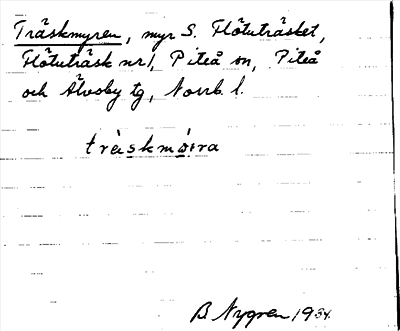 Träskmyren, myr S. Flötuträsket,
Flötuträsk nr 1, Piteå sn, Piteå
och Älvsby tg, Norrb. l.
tràiskmøira
B Nygren 1934.